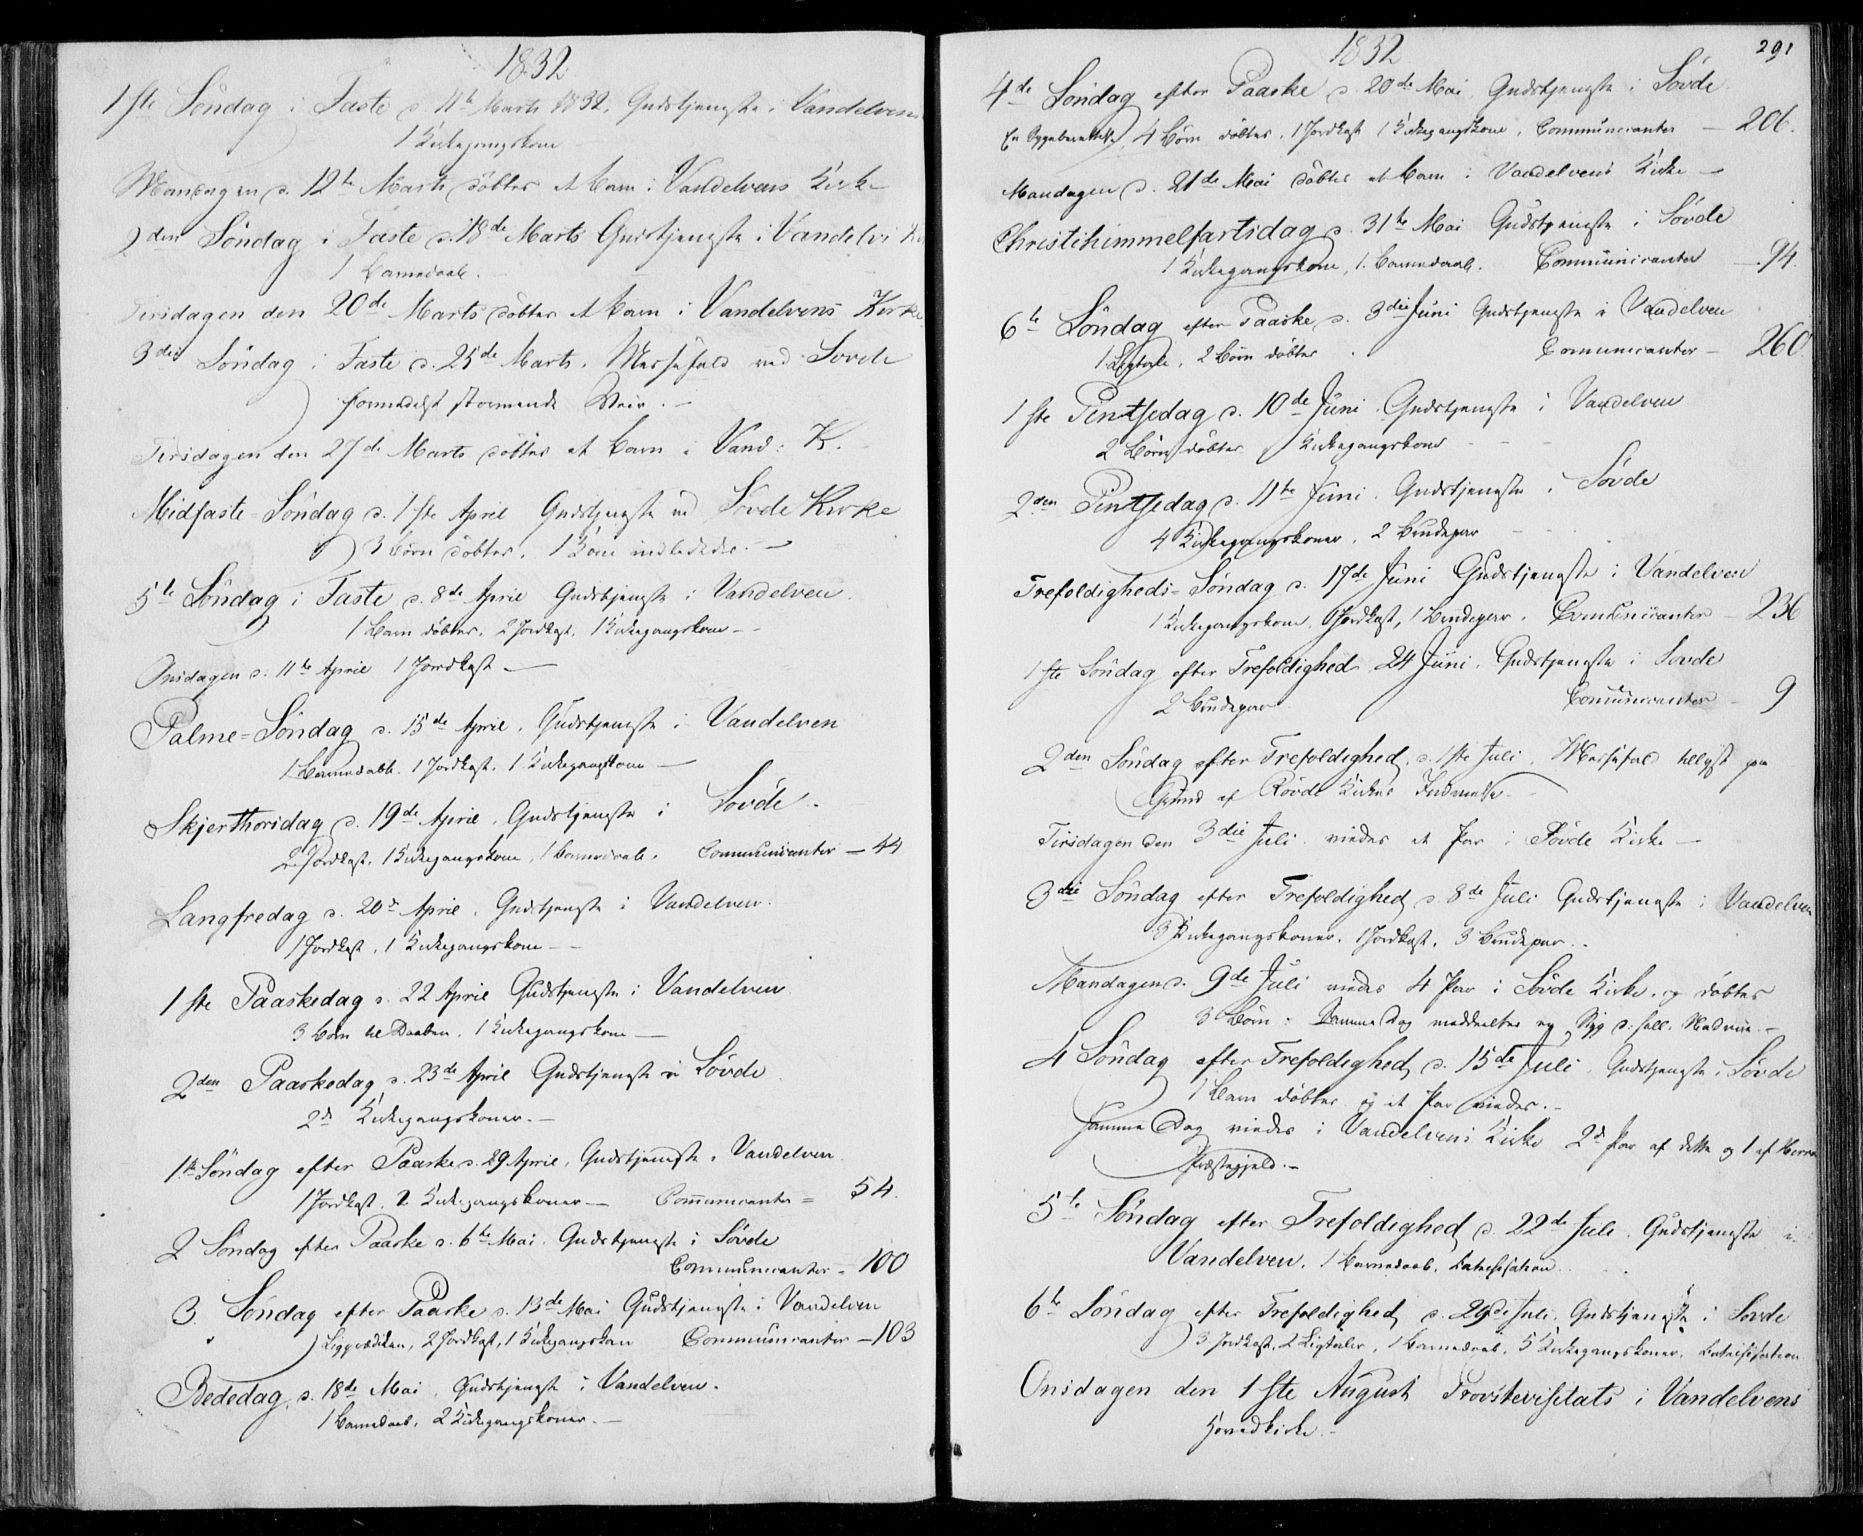 1832
1ste Söndag i Faste d. 11te Marts 1832. Gudstjeneste i Vandelven
1 Kirkegangskone
Mandagen d. 12te Marts döbtes et Barn i Vandelvens Kirke
2den Söndag i Faste d. 18de Marts Gudstjeneste i Vandelv: K
1 Barnedaab.
Tirsdagen den 20de Marts döbtes et Barn i Vandelvens Kirke
3die Söndag i Faste d. 25de Marts. Messefald ved Sovde
formedelst stormende Veir. -
Tirsdagen den 27de Marts döbtes et Barn i Vand: K.
Midfaste-Söndag d. 1ste April Gudstjeneste ved Sövde Kirke
3 Börn döbtes. 1 Kone indlededes. -
5te Söndag i Faste d. 8de April Gudstjeneste i Vandelven.
1 Barn döbtes, 2 Jordkast, 1 Kirkegangskone - -
Onsdagen d. 11te April 1 Jordkast -
Palme=Söndag d. 15de April. Gudstjeneste i Vandelven
1 Barnedaab. 1 Jordkast. 1 Kirkegangskone -
Skjerthorsdag d. 19de April. Gudstjeneste i Sovde.
2 Jordkast. 1 Kirkegangskone, 1 Barnedaab. Communicanter - 44
Langfredag d. 20de April. Gudstjeneste i Vandelven.
1 Jordkast. 1 Kirkegangskone - -
1ste Paaskedag d. 22 April Gudstjeneste i Vandelven
3 Börn til Daaben. 1 Kirkegangskone -
2den Paaskedag d. 23de April Gudstjeneste i Sövde
2de Kirkegangskoner. -
1ste Söndag efter Paaske d. 29 April. Gudstjeneste i Vandelven.
1 Jordkast. 2 Kirkegangskoner - Communicanter = 54.
2 Söndag efter Paaske d. 6te Mai. Gudstjeneste i Sövde
Communicanter - 100
3. Söndag efter Paaske d. 13de Mai Gudstjeneste i Vandelven
Liigprædiken, 2 Jordkast, 1 Kirkegangskone Communicanter - 103
Bededag, d. 18de Mai. Gudstjeneste i Vandelven.
1 Barnedaab, 2 Kirkegangskoner. -
1832
291
4de Söndag efter Paaske d. 20de Mai. Gudstjeneste i Sövde.
4 Börn döbtes. 1 Jordkast 1 Kirkegangskone. Communicanter - 206.
Mandagen d. 21de Mai döbtes et Barn i Vandelvens Kirke -
Christihimmelfartsdag d. 31te Mai Gudstjeneste i Sövde
1 Kirkegangskone, 1. Barnedaab. Communicanter - 94.
6te Söndag efter Paaske d. 3die Juni Gudstjeneste i Vandelven
1 Ligtale. 2 Börn döbtes. Communicanter - 260.
1ste Pintsedag d. 10de Juni. Gudstjeneste i Vandelven
2 Börn döbtes. 1 Kirkegangskone
2den Pintsedag d. 11te Juni. Gudstjeneste i Sövde
4 Kirkegangskoner. 2 Brudepar
Trefoldigheds-Söndag d. 17de Juni Gudstjeneste i Vandelven
1 Kirkegangskone. 1 Jordkast, 1 Brudepar. Communicanter - 236
1ste Söndag efter Trefoldighed 24 Juni. Gudstjeneste i Sovde
2 Brudepar. Communicanter - 9
2den Söndag efter Trefoldighed. d. 1ste Juli. Messefald tillyst paa
Grund af Rövde Kirkes Indvielse. -
Tirsdagen den 3die Juli viedes et Par i Sövde Kirke -
3die Söndag efter Trefoldighed d. 8de Juli Gudstjeneste i Vandelven
3 Kirkegangskoner. 1 Jordkast. 3 Brudepar. .
Mandagen d. 9de Juli viedes 4 Par i Sövde Kirke. og döbtes
3 Börn. Samme Dag meddeeltes en Syg d. hell. Nadvere. -
4 Söndag efter Trefoldighed d. 15de Juli. Gudstjeneste i Sövde
1 Barn döbtes og et Par viedes. -
Samme Dag viedes i Vandelvens Kirke 2de Par af dette og 1 af Herrø
Præstegjeld. -
5te Söndag efter Trefoldighed d. 22de Juli. Gudstjeneste i
Vandelven. 1 Barnedaab. Catechisation.
6te Söndag efter Trefoldighed d. 29de Juli. Gudstjeneste i Sovde
3 Jordkast. 2 Ligtaler, 1 Barnedaab. 5 Kirkegangskoner. Catechisation
Onsdagen den 1ste August Provstevisitats i Vandelvens
Hovedkirke. -